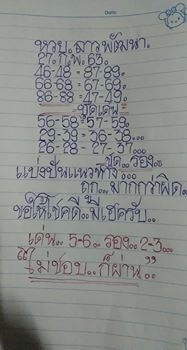 Date:
หวย.ลาวพัฒนา.
27.ก.พ.63.
46-48 = 87-89.
66-68 = 67-69.
86-88 = 47-49.
=ชุดเด่น.=
56-58 = 57-59.
29-39 = 36-38...
26-28 = 27-37...
=ชุด..รอง.=
แบ่งปันแนวทาง
ถูก..มากกว่าผิด.
ขอให้โชคดี..มีเฮครับ..
เด่น.. 5-6..รอง..2-3...
"ไม่ชอบ..ก็ผ่าน.."